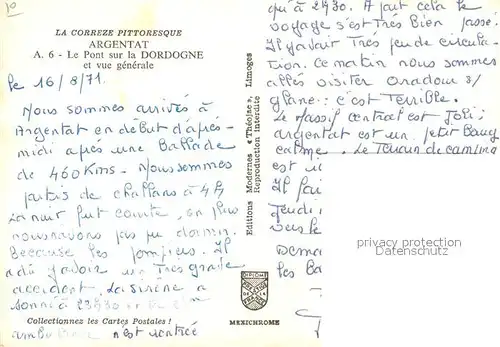 LA CORREZE PITTORESQUE
ARGENTAT
A. 6 - Le Pont sur la DORDOGNE
et vue générale
le 16/8/71.
Nous sommes arrivés à
Argentat en début d'après-
midi après une Ballade
de 460 Kms. Nous sommes
partis de challans à 4h
La nuit fut courte, en plus
nous navons pas pu dormir.
Because les pompiers. Il
a dû y avoir un Très grave
accident. La sirène a
sonné à 23H30 et
ambulance n'est rentrée
Collectionnez les Cartes Postales !
Editions Modernes « Théojac », Limoges
Reproduction interdite
DIPLOME
PRESTIGE
DE LA
FRANCE
MEXICHROME
qu'à 2H30. A part cela le
voyage s'est Très Bien passé.
Il y avait Très peu de circula
tion. Ce matin nous sommes
allés visiter Oradour s/
glane : c'est Terrible.
Le Massif central est Joli ;
argentat est un petit Bourg
calme. Le Terrain de camping
est
Il fai
vers le
Dema
les Ba
privacy protection
Datenschutz